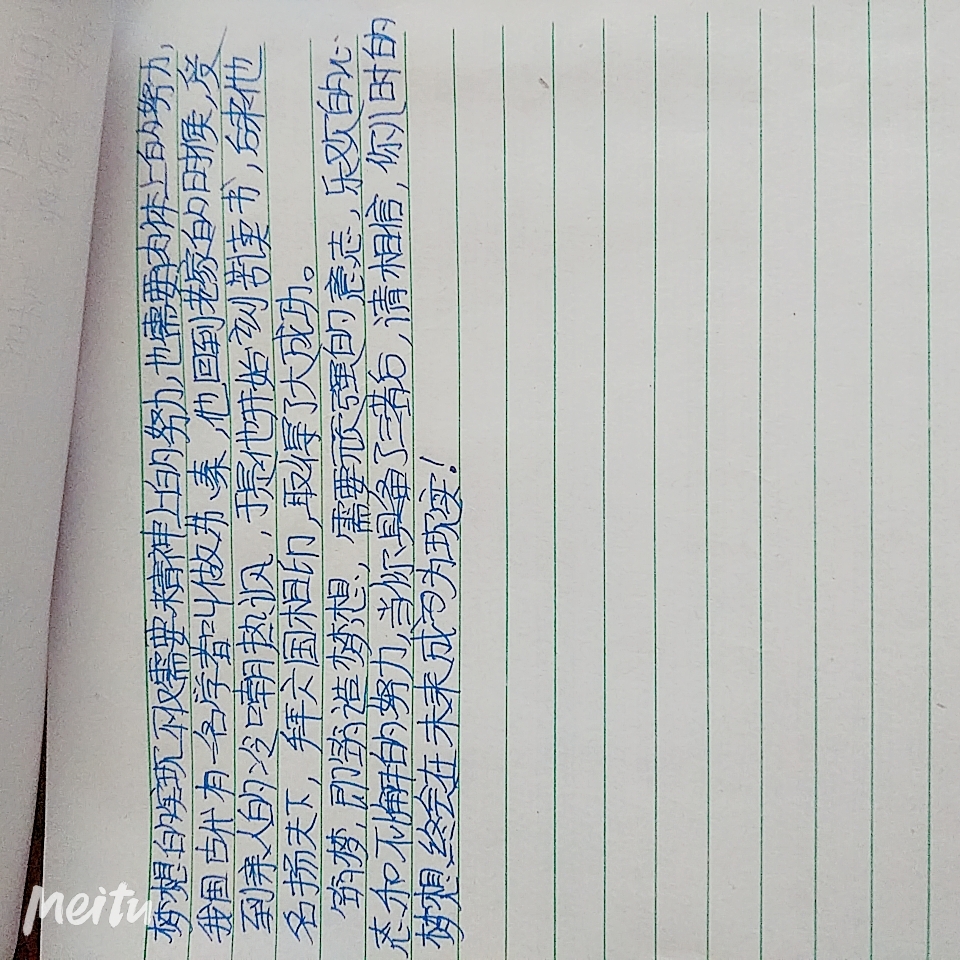 梦想的实现不仅需要精神上的努力,也需要肉体上的努力,
我国古代有一名学者叫做苏秦,他回到老家的时候,受
到亲人的冷嘲热讽,于是他开始刻苦读书,后来他
名扬天下,拜六国相印,取得了大成功。
筑梦,即筑造梦想,需要顽强的意志,乐观的心
态和不懈的努力,当你具备了三者后,请相信,你儿时的
梦想终会在未来成为现实!
meitu